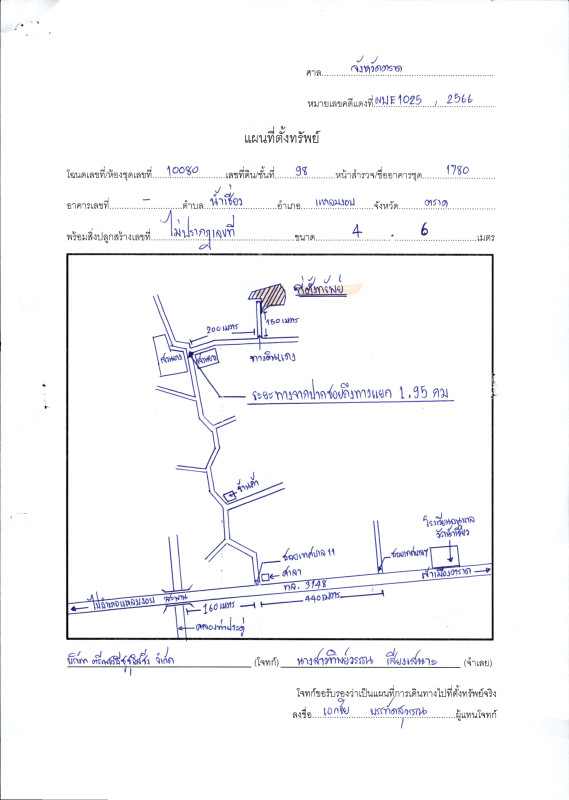 ศาล จังหวัดตราด
หมายเลขคดีแดงที่ ผบE1025 / 2566
แผนที่ตั้งทรัพย์
โฉนดเลขที่/ห้องชุดเลขที่ 10080 เลขที่ดิน/ชั้นที่ 98 หน้าสำรวจ/ชื่ออาคารชุด 1780
อาคารเลขที่ - ตำบล น้ำเชี่ยว อำเภอ แหลมงอบ จังหวัด ตราด
พร้อมสิ่งปลูกสร้างเลขที่ ไม่ปรากฏเลขที่ ขนาด 4 * 6 เมตร
ที่ตั้งทรัพย์
200 เมตร
150 เมตร
สวนยาง
ทางดินแดง
ระยะทางจากปากซอยถึงทางแยก 1.95 กม
ร้านค้า
โรงเรียนอนุบาล
วัดน้ำเชี่ยว
ซอยเทศบาล 11
ศาลา
ซอยเทศบาล
เข้าเมืองตราด
ทล. 3148
ไปอำเภอแหลมงอบ
สะพาน
160 เมตร
440 เมตร
คลองท่าประดู่
จำกัด (โจทก์) นางสาวทิพย์วรรณ เสียงเสนาะ (จำเลย)
โจทก์ขอรับรองว่าเป็นแผนที่การเดินทางไปที่ตั้งทรัพย์จริง
ลงชื่อ เอกชัย บรรทัดสุวรรณ ผู้แทนโจทก์